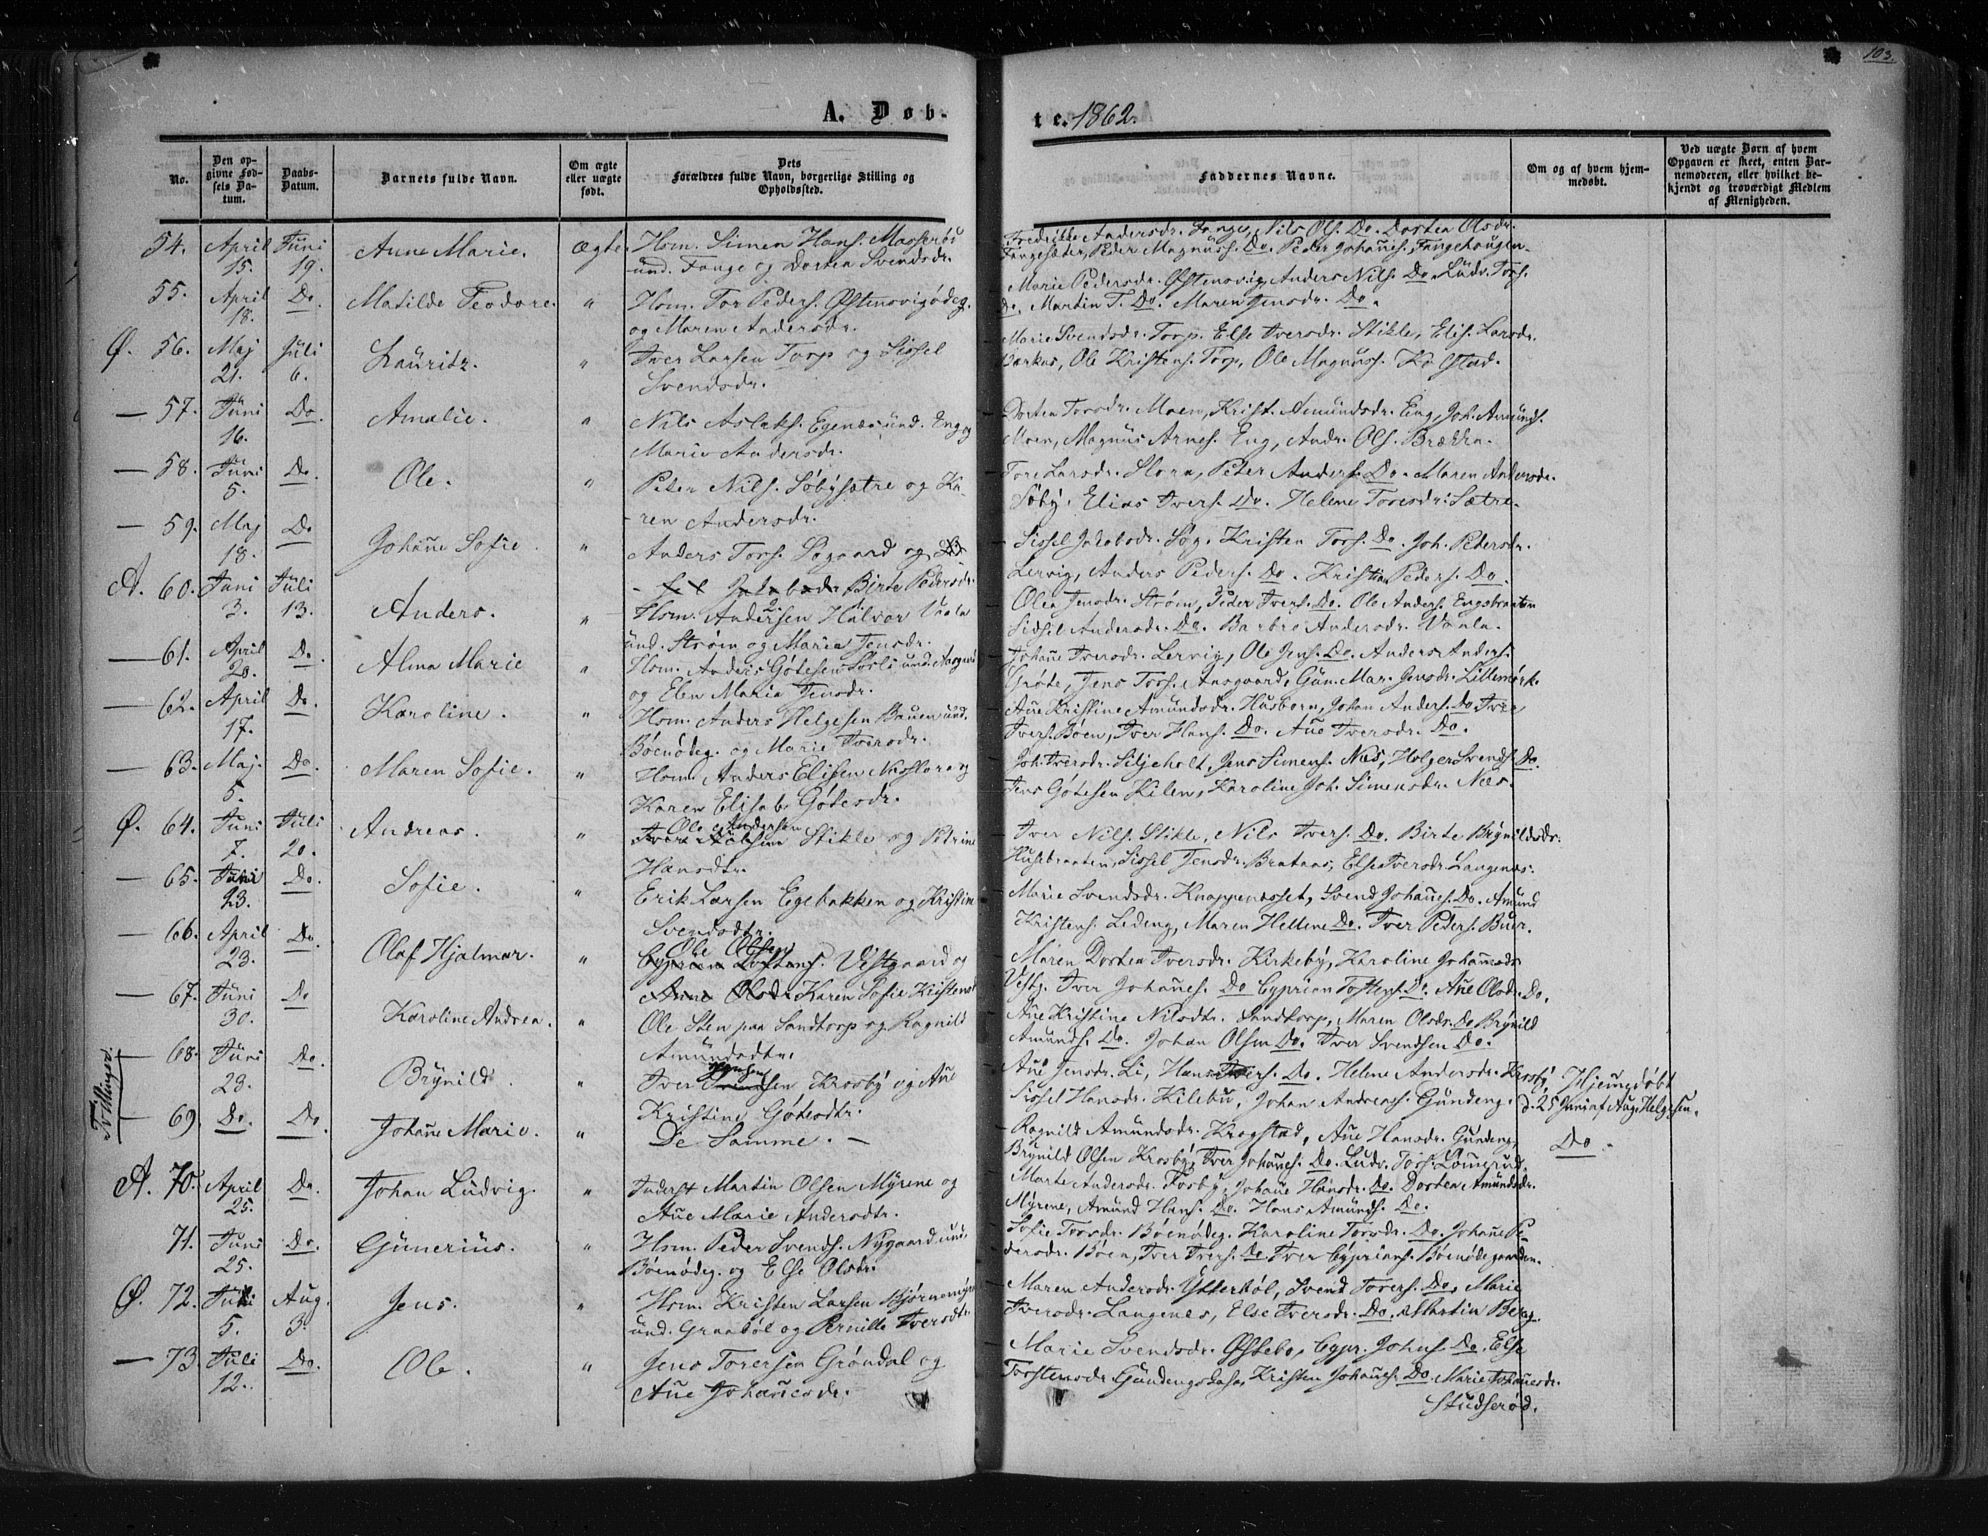 103.
A. Døb-
te. 1862.
No.
Den op-
givne Fød-
sels Da-
tum.
Daabs-
Datum.
Barnets fulde Navn.
Om ægte
eller uægte
født.
Dets
Forældres fulde Navn, borgerlige Stilling og
Opholdssted.
Faddernes Navne.
Om og af hvem hjem-
medøbt.
Ved uægte Børn af hvem
Opgaven er skeet, enten Bar-
nemoderen, eller hvilket be-
kjendt og troværdigt Medlem
af Menigheden.
54. April 15. Juni 19. Anne Marie. Ægte. Hsm. Simen Hans. Masserød
und. Tange og Dorten Svendsdr.
Fredrikke Andersdr. Tange, Nils Ols. Do. Dorten Olsdr.
Tangesæter, Peder Magnuss. Do. Peder Johañes. Tangehaugen.
55. April 18. Do. Matilde Teodore. " Hsm. Tor Peders. Østenvigødeg.
og Maren Andersdr.
Marie Pedersdr. Østenvig, Anders Nils. Do. Ludv. Tors.
Do. Martin T. Do. Maren Jensdr. Do.
Ø. 56. Maj 21. Juli 6. Lauritz. " Iver Larsen Torp og Sissel
Svendsdr.
Marie Svendsdr. Torp. Else Iversdr. Stikle, Elis. Larsdr.
Ole Kristens. Torp, Ole Magnuss. Kolstad.
— 57. Juni 16. Do Amalie. " Nils Aslaks. Egenæs und. Eng og
Marie Andersdr.
Dorten Torsdr. Moen, Krist. Amundsdr. Eng, Joh. Amunds.
Moen, Magnus Arnes. Eng, Andr. Ols. Brække.
— 58. Juni 5. Do. Ole. " Peter Nils. Søbysætre og Ka-
ren Andersdr.
Tore Larsdr. Flora, Peter Anders. Do. Maren Andersdr.
Søby. Elias Ivers. Do. Helene Toresdr. Sætre.
— 59. Maj 18. Do Johañe Sofie. " Anders Tors. Søgaard og
Birte Pedersdr.
Sissel Jakobsdr. Søg. Kristen Tors. Do. Joh. Petersdr.
Lervig, Anders Peders. Do. Kristian Peders. Do.
A. 60. Juni 3. Juli 13. Anders. " Hsm. Andersen Halvor Vaala
und. Strøm og Maria Jensdr.
Olea Jensdr. Strøm, Peder Ivers. Do. Ole Anders. Engebraaten
Sidsel Andersdr. Do. Barbro Andersdr. Vaala.
— 61. April 20. Do. Alma Marie " Hsm. Anders Gøtesen Sørli und. Aasgaard
og Elen Maria Jensdr.
Johañe Iversdr. Lervig, Ole Jens. Do. Anders Anders.
Grøte, Jens Tors. Aasgaard, Gun. Mar. Jensdr. Lillemørk.
— 62. April 17. Do. Karoline. " Hsm. Anders Helgesen Bauen und.
Bøenødeg. og Marie Iversdr.
Añe Kristine Amundsdr. Husborn, Johan Anders. Do. Iver
Ivers. Bøen, Iver Hans. Do. Añe Iversdr. Do.
— 63. Maj. 5. Do. Maren Sofie. " Hsm. Anders Elisen Næsflora og
Karen Elisab. Gøtesdr.
Joh. Iversdr. Siljeholt, Jens Simens. Næs, Holger Svends. Do.
Jens Gøtesen Kilen, Karoline Joh. Simensdr. Næs.
Ø. 64. Juni 7. Juli 20. Andreas. " Ole Andersen
Iver Nilsen Stikle og Petrine
Hansdtr.
Iver Nils. Stikle, Nils Ivers. Do. Birte Brynildsdr.
Husebraaten, Sissel Jensdr. Brataas, Else Iversdr. Langenæs.
— 65. Juni 23. Do. Sofie. " Erik Larsen Egebakken og Kristine
Svendsdtr.
Marie Svendsdr. Knappenasset, Svend Johañes. Do. Amund
Kristens. Ledeng, Maren Helline Do. Iver Peders. Buer.
— 66. April 23. Do. Olaf Hjalmar. " Ole Olsen
Cyprian Tostens. Vestgaard og
Anne Olsdr. Karen Sofie Kristensdr.
Maren Dorten Iversdr. Kirkeby, Karoline Johañesdr.
Vestg. Iver Johañes. Do Cyprian Tostens. Do. Añe Olsdr. Do.
— 67. Juni 30. Do Karoline Andrea. " Ole Sten paa Sandtorp og Ragnild
Amundsdtr.
Añe Kristine Nilsdtr. Sandtorp, Maren Olsdr. Do Brynild
Amunds. Do. Johan Olsen Do. Iver Svendsen Do.
Tvillinger.
— 68. Juni 23. Do. Brynild. " Iver Svendsen Krosby og Añe
Kristine Gøtesdtr.
Añe Jensdr. Li, Hans Ivers. Do. Helene Andersdr. Krosby,
Sissel Hansdr. Kilebu, Johan Andreass. Gundeng.
Hjemdøbt
d. 25 Juni af Aug. Helgesen.
— 69. Do. Do. Johañe Marie. " De Samme. —
Ragnild Amundsdr. Krogstad, Añe Hansdr. Gundeng,
Brynild Olsen Krosby, Iver Johañes. Do. Ludv. Tors. Lømgrud.
Do.
A. 70. April 25. Do. Johan Ludvig. " Inderst Martin Olsen Myrene og
Añe Marie Andersdtr.
Marte Andersdr. Fosby, Johañe Hansdr. Do. Dorten Amundsdr.
Myrene, Amund Hans. Do. Hans Amunds. Do.
71. Juni 25. Do. Gunerius. " Hsm. Peder Svends. Nygaard und.
Bøenødeg. og Else Olsdr.
Sofie Torsdr. Bøenødeg. Karoline Torsdr. Do. Johañe Pe-
dersdr. Bøen, Iver Ivers. Do Iver Cyprians. Bøenødegaarden.
Ø. 72. Juli 5. Aug. 3. Jens. " Hsm. Kristen Larsen Bjørnemyr
und. Graabøl og Pernille Iversdtr.
Maren Andersdr. Ytterbøl, Svend Torers. Do. Marie
Iversdr. Langenes, Else Iversdr. Do. Martin Berg.
— 73. Juli 12. Do. Ole. " Jens Torersen Grøndal og
Añe Johañesdr.
Marie Svendsdr. Østebø, Cypr. Johns. Do. Else
Torstensdr. Gundengsdasa, Kristen Johañes. Do. Marie Johañesdr.
Studserød.